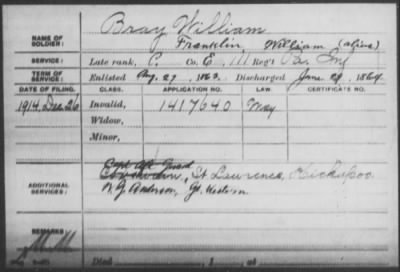 NAME OF SOLDIER: Bray William
Franklin, William (alias)
SERVICE: Late rank, P. Co. E, 111 Reg't Pa. Inf
TERM OF SERVICE: Enlisted Aug. 27, 1863. Discharged June 29, 1864.
DATE OF FILING. CLASS. APPLICATION NO. LAW. CERTIFICATE NO.
1914, Dec. 26 Invalid, 1417640 May
Widow,
Minor,
ADDITIONAL SERVICES: St Lawrence, Kickapoo
W. G. Anderson,
REMARKS:
Died , 1 , at